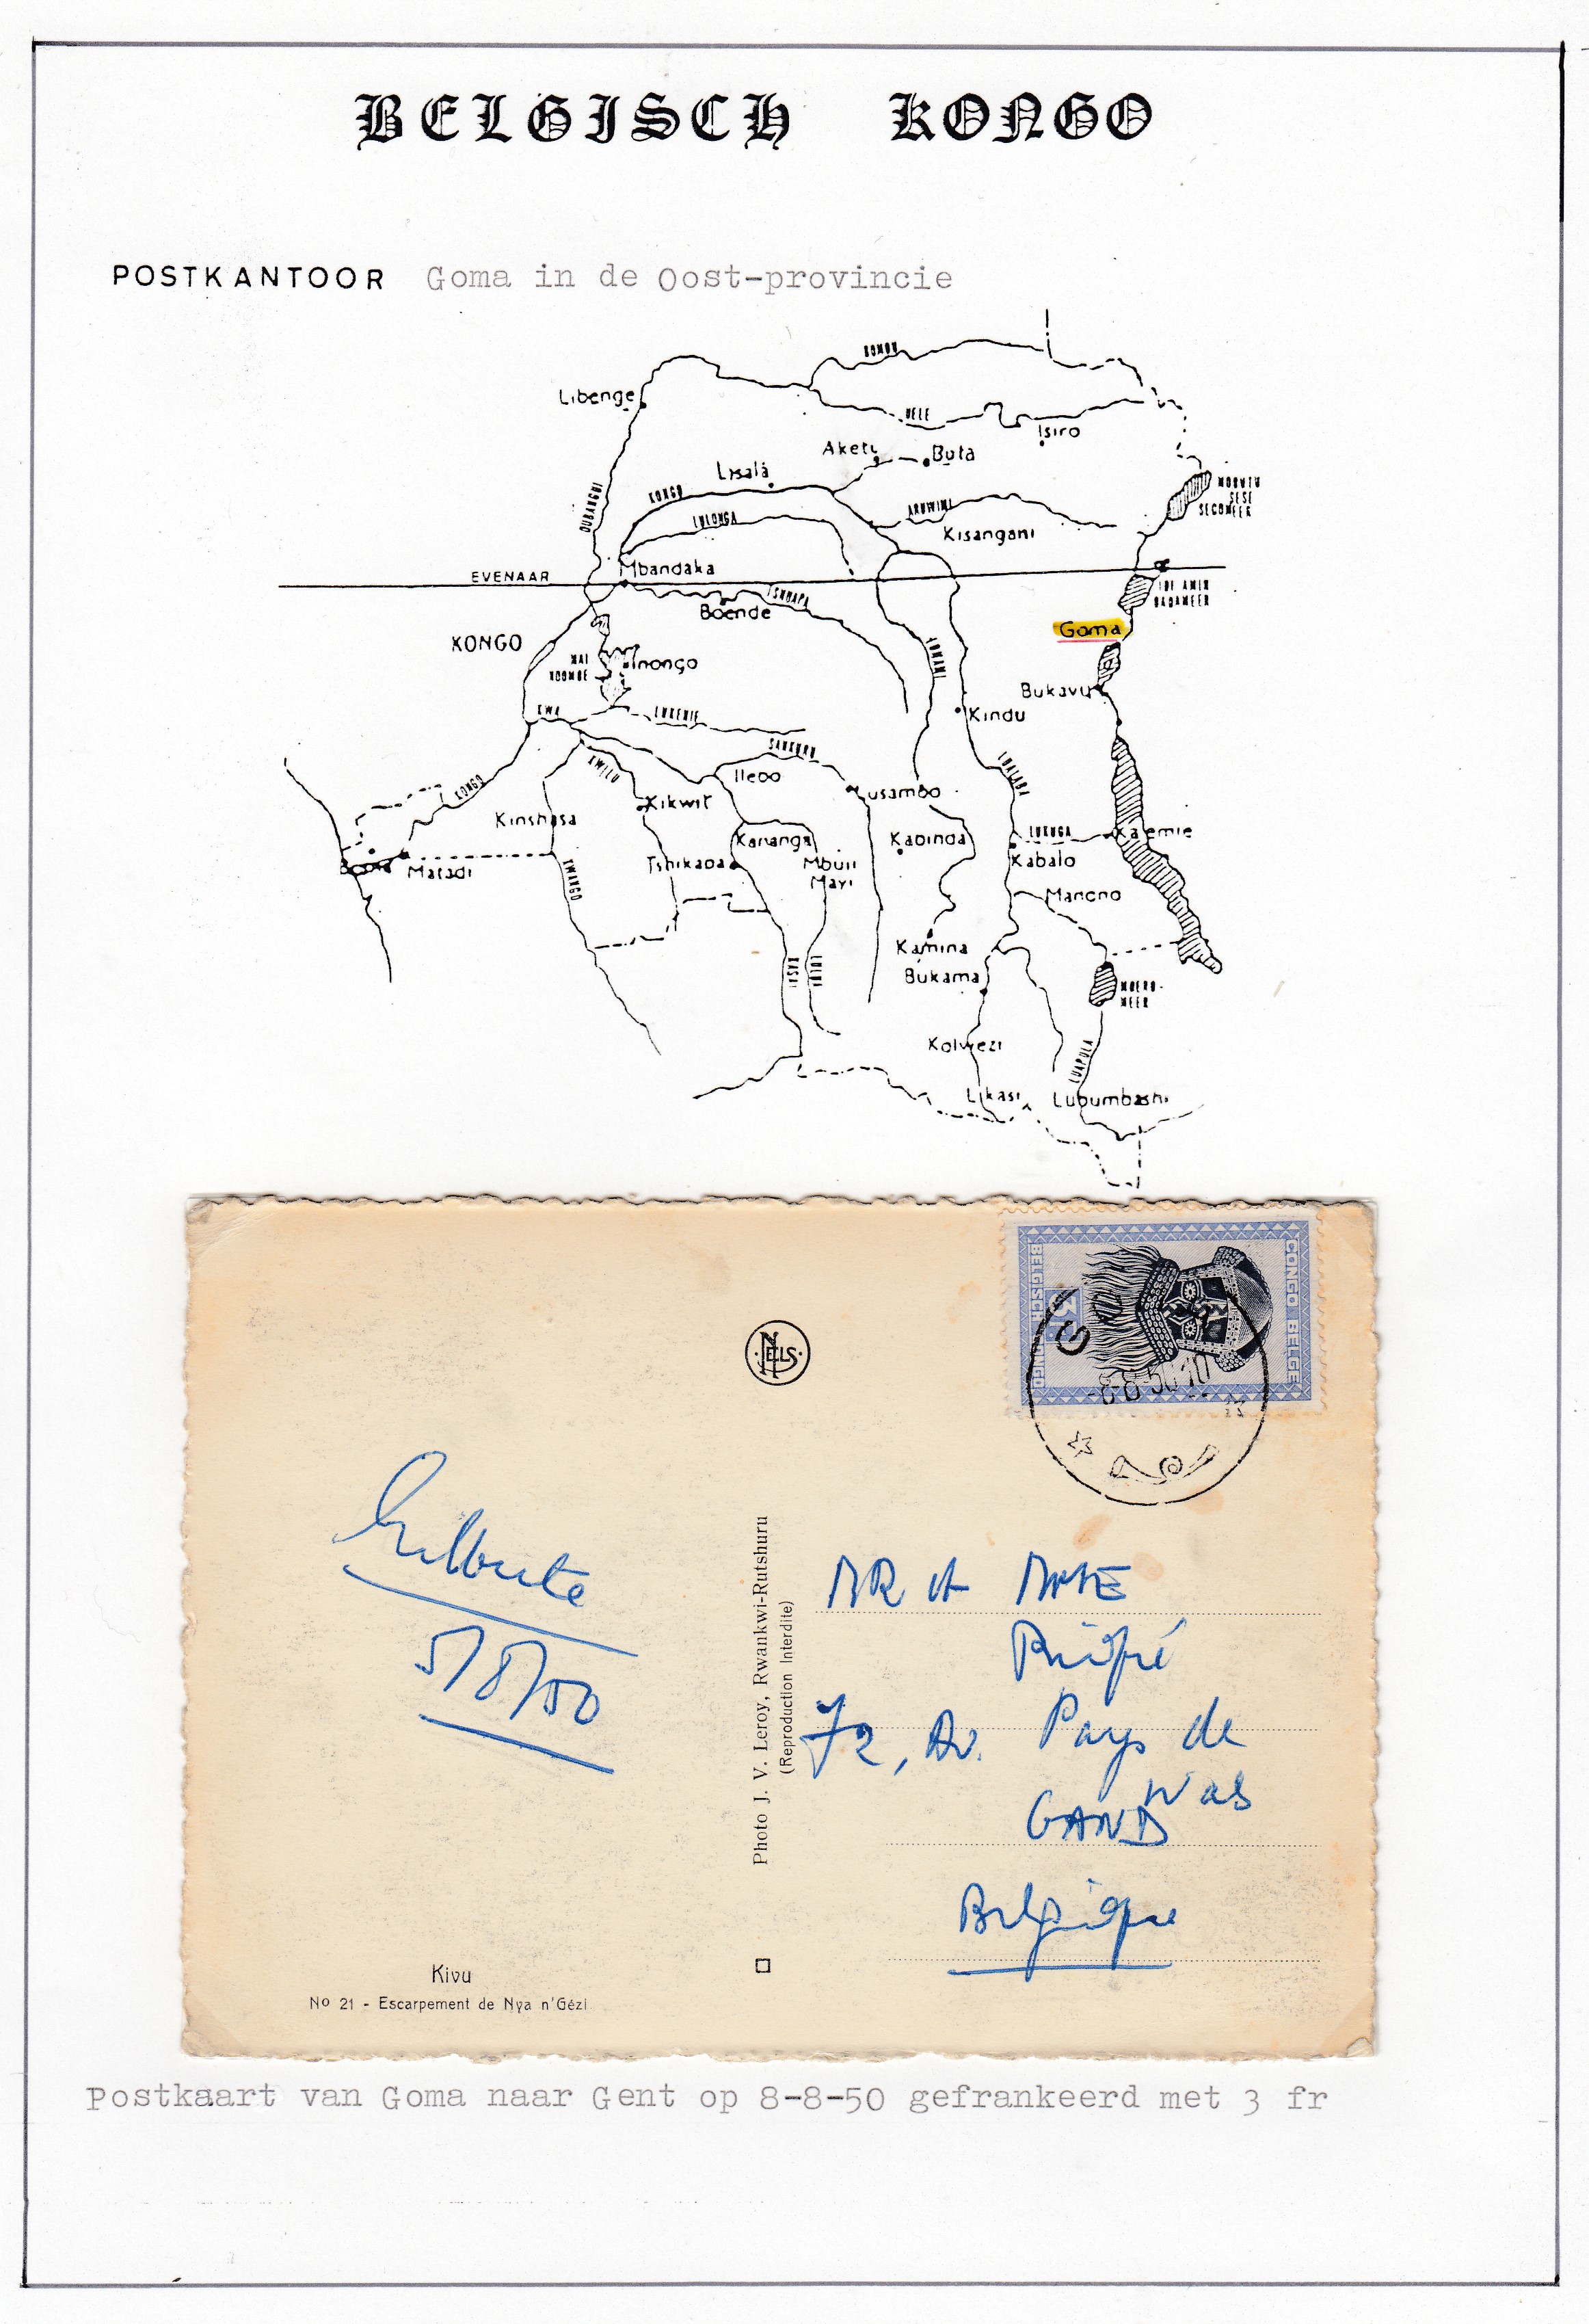 BELGISCH KONGO
POSTKANTOOR Goma in de Oost-provincie
BOMOU
Libenge
UELE
Isiro
Aketi
Buta
Lisala
KONGO
OUBANGUI
LULONGA
ARUWIMI
MOBUTU
SESE
SECOMEER
Kisangani
Mbandaka
EVENAAR
TSHUAPA
IDI AMIN
DADAMEER
Boende
Goma
KONGO
LOMAMI
MAI
NDOMBE
Inongo
Bukavu
KWA
LUKENIE
Kindu
SANKURU
KWILU
Ileoo
LUALABA
KONGO
Kikwit
usambo
Kinshasa
Kananga
Kaoinda
LUKUGA
Ka emie
Boma
Matadi
KWANGO
Tshikapa
Mbuji
Mayi
Kabalo
Manono
Kamina
KASAI
LULUA
Bukama
MOERO-
MEER
Kolwezi
LUAPULA
Likasi
Lubumbashi
CONGO BELGE
BELGISCH CONGO
3F
G
-8-8-50 10
NELS
Gilberte
5/8/50
Photo J. V. Leroy, Rwankwi-Rutshuru
(Reproduction Interdite)
MR et MME
72, Av. Pays de
Was
GAND
Belgique
Kivu
No 21 - Escarpement de Nya n'Gézi
Postkaart van Goma naar Gent op 8-8-50 gefrankeerd met 3 fr